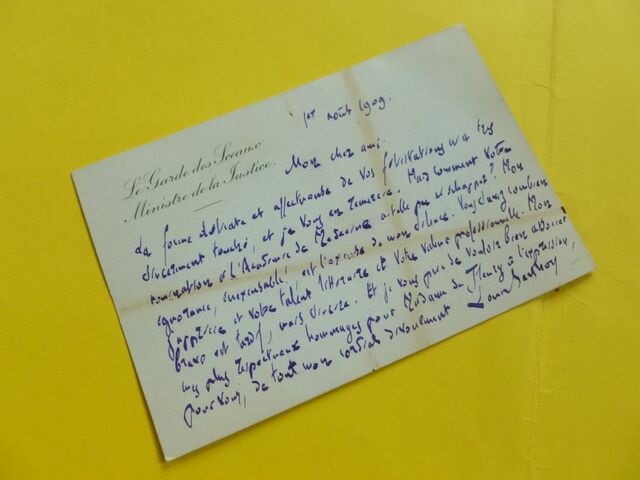 Le Garde des Sceaux
Ministre de la Justice.
1er août 1909.
Mon cher ami.
La forme délicate et affectueuse de vos félicitations m'a très
vivement touché, et je vous en remercie. Mais comment votre
nomination à l'Académie de Médecine a-t-elle pu m'échapper? Mon
ignorance, inexcusable! est l'excuse de mon silence. Vous savez combien
j'apprécie et votre talent littéraire et votre valeur professionnelle. Mon
bravo est tardif, mais sincère. Et je vous prie de vouloir bien associer
mes plus respectueux hommages pour Madame de Fleury à l'expression,
pour vous, de tout mon cordial dévouement
Louis Barthou